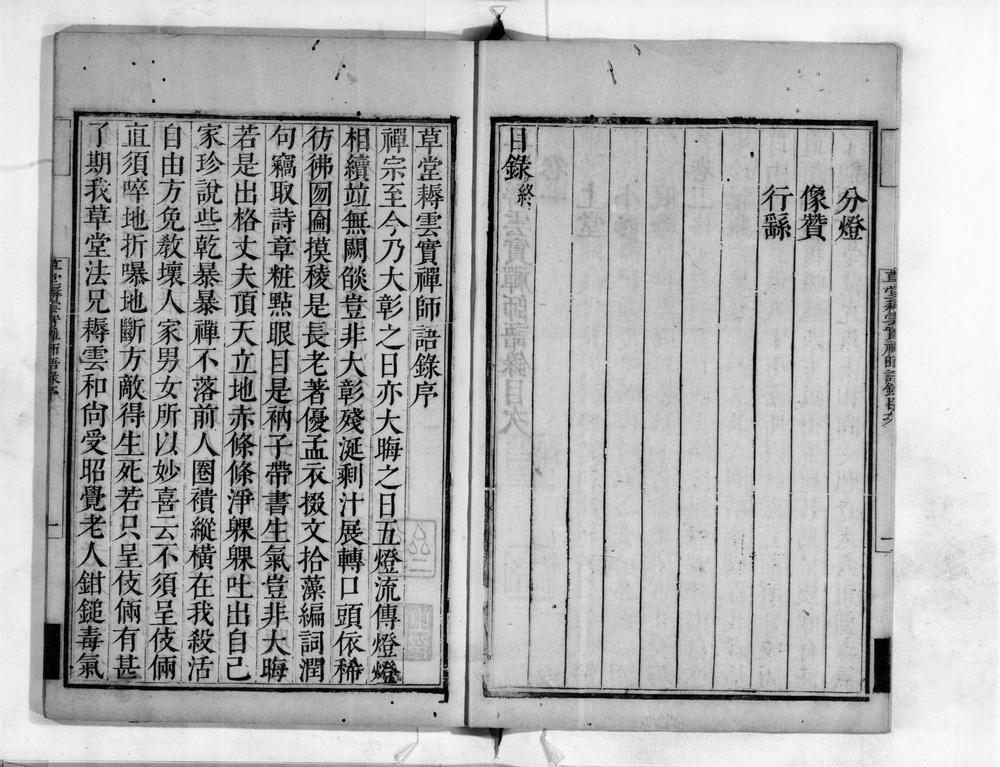 分燈
像贊
行繇
目錄終
草堂耨雲實禪師語錄目次
一
草堂耨雲實禪師語錄序
禪宗至今乃大彰之日亦大晦之日五燈流傳燈燈
相續並無闕燄豈非大彰殘涎剩汁展轉口頭依稀
彷彿囫圇摸稜是長老著優孟衣掇文拾藻編詞潤
句竊取詩章粧點眼目是衲子帶書生氣豈非大晦
若是出格丈夫頂天立地赤條條淨躶躶吐出自己
家珍說些乾暴暴禪不落前人圈襀縱橫在我殺活
自由方免教壞人家男女所以妙喜云不須呈伎倆
直須啐地折嚗地斷方敵得生死若只呈伎倆有甚
了期我草堂法兄耨雲和尙受昭覺老人鉗鎚毒氣
草堂耨雲實禪師語錄序
一